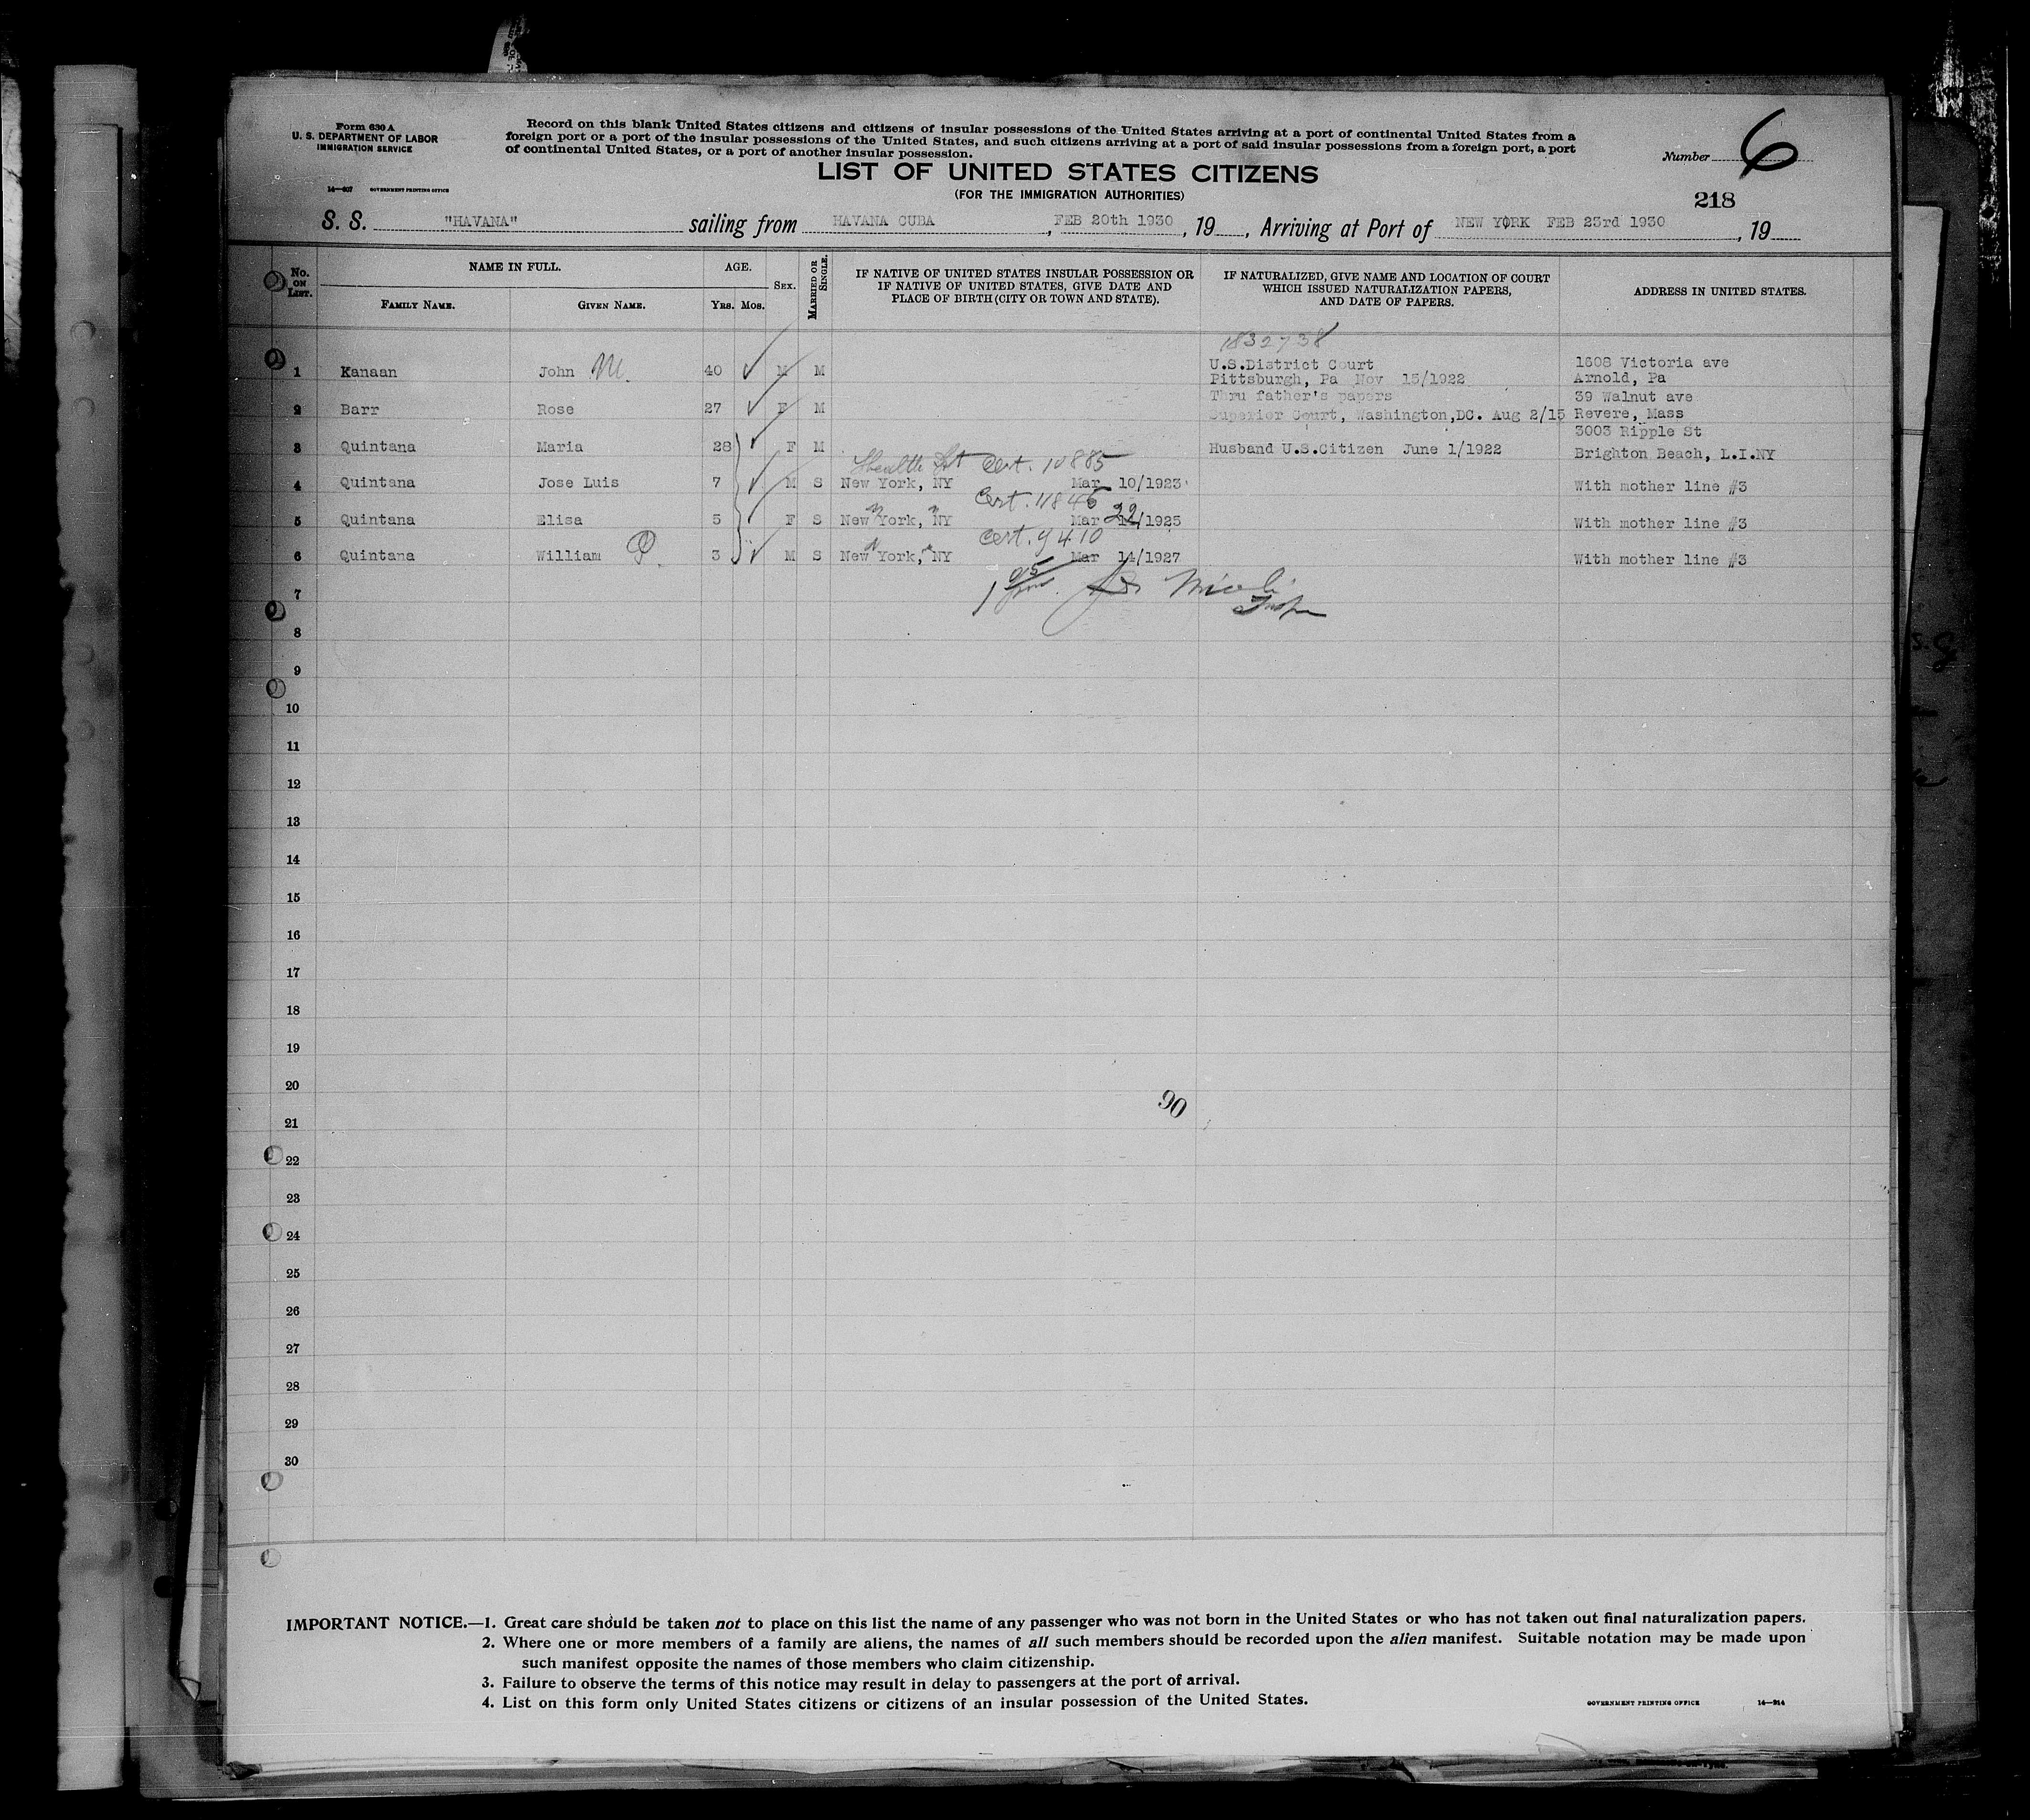 Form 630 A
U. S. DEPARTMENT OF LABOR
IMMIGRATION SERVICE
14—607 GOVERNMENT PRINTING OFFICE
Record on this blank United States citizens and citizens of insular possessions of the United States arriving at a port of continental United States from a
foreign port or a port of the insular possessions of the United States, and such citizens arriving at a port of said insular possessions from a foreign port, a port
of continental United States, or a port of another insular possession.
Number 6
LIST OF UNITED STATES CITIZENS
(FOR THE IMMIGRATION AUTHORITIES)
218
S. S. "HAVANA" sailing from HAVANA CUBA, FEB 20th 1930, 19, Arriving at Port of NEW YORK FEB 23rd 1930, 19
No. ON LIST.
NAME IN FULL.
FAMILY NAME. GIVEN NAME.
AGE.
YRS. MOS.
SEX.
MARRIED OR SINGLE.
IF NATIVE OF UNITED STATES INSULAR POSSESSION OR
IF NATIVE OF UNITED STATES, GIVE DATE AND
PLACE OF BIRTH (CITY OR TOWN AND STATE).
IF NATURALIZED, GIVE NAME AND LOCATION OF COURT
WHICH ISSUED NATURALIZATION PAPERS,
AND DATE OF PAPERS.
ADDRESS IN UNITED STATES.
1832738
U.S.District Court 1508 Victoria ave
1 Kanaan John M. 40 M M Pittsburgh, Pa Nov 15/1922 Arnold, Pa
Thru father's papers 39 Walnut ave
2 Barr Rose 27 F M Superior Court, Washington,DC. Aug 2/15 Revere, Mass
3003 Ripple St
3 Quintana Maria 28 F M Husband U.S.Citizen June 1/1922 Brighton Beach, L.I.NY
Health Dpt Cert. 10885
4 Quintana Jose Luis 7 M S New York, NY Mar 10/1923 With mother line #3
Cert. 11846
5 Quintana Elisa 5 F S New York, NY Mar 22/1925 With mother line #3
Cert. 9410
6 Quintana William P. 3 M S New York, NY Mar 14/1927 With mother line #3
7
8
9
10
11
12
13
14
15
16
17
18
19
20
90
21
22
23
24
25
26
27
28
29
30
IMPORTANT NOTICE.—1. Great care should be taken not to place on this list the name of any passenger who was not born in the United States or who has not taken out final naturalization papers.
2. Where one or more members of a family are aliens, the names of all such members should be recorded upon the alien manifest. Suitable notation may be made upon
such manifest opposite the names of those members who claim citizenship.
3. Failure to observe the terms of this notice may result in delay to passengers at the port of arrival.
4. List on this form only United States citizens or citizens of an insular possession of the United States.
GOVERNMENT PRINTING OFFICE 14—914